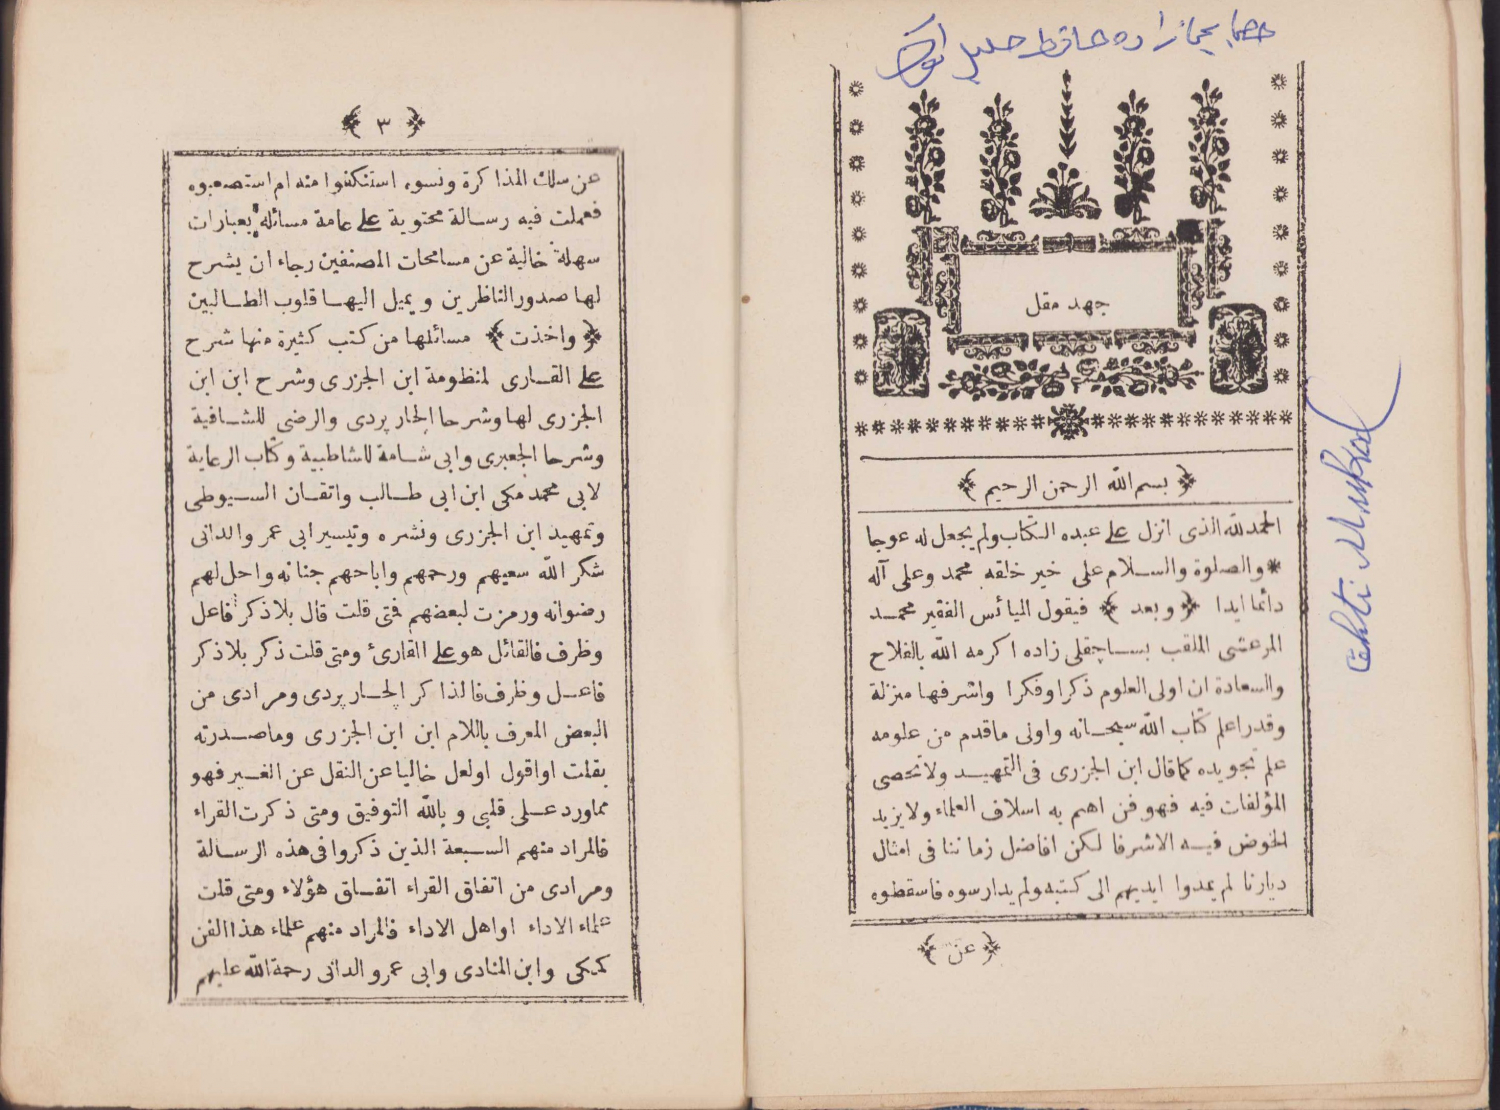 جهد مقل
﴿ بسم الله الرحمن الرحيم ﴾
الحمد لله الذى انزل على عبده الكتاب ولم يجعل له عوجا
* والصلوة والسلام على خير خلقه محمد وعلى آله
دائما ابدا ﴿ وبعد ﴾ فيقول البائس الفقير محمد
المرعشى الملقب بساچقلى زاده اكرمه الله بالفلاح
والسعادة ان اولى العلوم ذكرا وفكرا واشرفها منزلة
وقدرا علم كتاب الله سبحانه واولى ماقدم من علومه
علم تجويده كما قال ابن الجزرى فى التمهيد ولا تحصى
المؤلفات فيه فهو فن اهتم به اسلاف العلماء ولا يزيد
الخوض فيه الا شرفا لكن افاضل زماننا فى امثال
ديارنا لم يمدوا ايديهم الى كتبه ولم يدارسوه فاسقطوه
﴿ عن ﴾
Mukbil
﴿ ٣ ﴾
عن سلك المذاكرة ونسوه استنكفوا منه ام استصعبوه
فعملت فيه رسالة محتوية على عامة مسائله بعبارات
سهلة خالية عن مسامحات المصنفين رجاء ان يشرح
لها صدور الناظرين ويميل اليها قلوب الطالبين
﴿ واخذت ﴾ مسائلها من كتب كثيرة منها شرح
على القارى لمنظومة ابن الجزرى وشرح ابن ابن
الجزرى لها وشرحا الجاربردى والرضى للشافية
وشرحا الجعبرى وابى شامة للشاطبية وكتاب الرعاية
لابى محمد مكى ابن ابى طالب واتقان السيوطى
وتمهيد ابن الجزرى ونشره وتيسير ابى عمر والدانى
شكر الله سعيهم ورحمهم واباحهم جنانه واحل لهم
رضوانه ورمزت لبعضهم فمتى قلت قال بلا ذكر فاعل
وظرف فالقائل هو على القارئ ومتى قلت ذكر بلا ذكر
فاعل وظرف فالذاكر الجاربردى ومرادى من
البعض المعرف باللام ابن ابن الجزرى وما صدرته
بقلت او اقول او لعل خاليا عن النقل عن الغير فهو
مما ورد على قلبى وبالله التوفيق ومتى ذكرت القراء
فالمراد منهم السبعة الذين ذكروا فى هذه الرسالة
ومرادى من اتفاق القراء اتفاق هؤلاء ومتى قلت
علماء الاداء او اهل الاداء فالمراد منهم علماء هذا الفن
كمكى وابن المنادى وابى عمرو الدانى رحمة الله عليهم